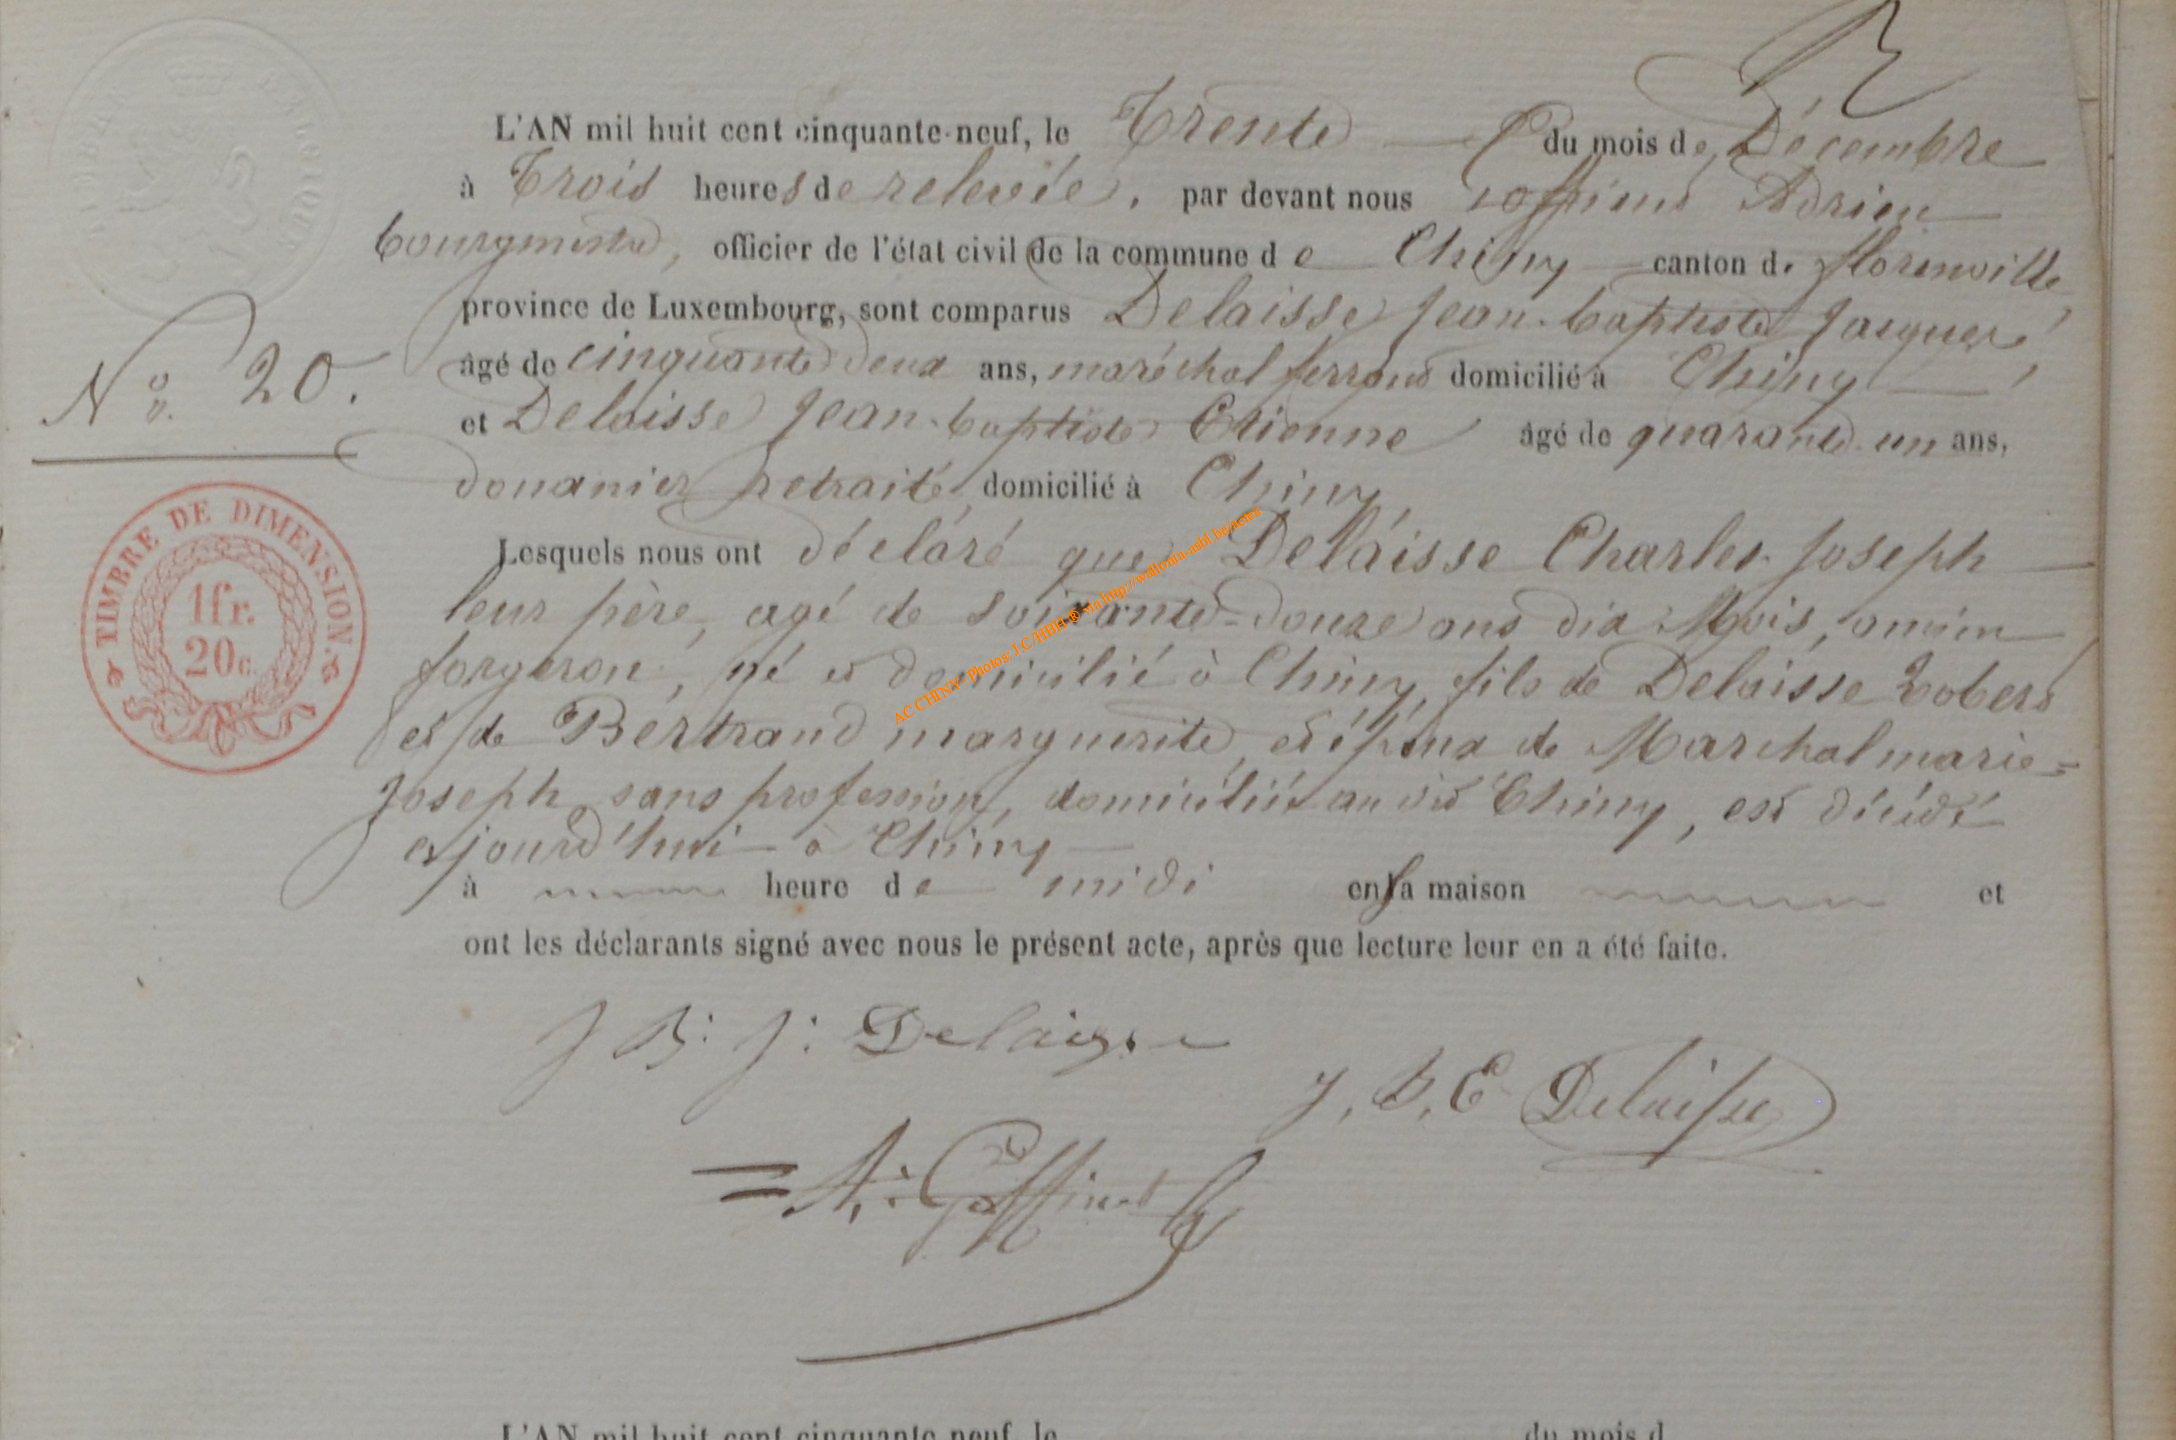 L'AN mil huit cent cinquante-neuf, le Trente du mois de Décembre
à Trois heures de relevée, par devant nous Goffinet Adrien
bourgmestre, officier de l'état civil de la commune de Chiny canton de florenville
province de Luxembourg, sont comparus Delaisse Jean-baptiste Jacques
N° 20.
âgé de cinquante deux ans, maréchal ferrand domicilié à Chiny
et Delaisse Jean-baptiste Etienne âgé de quarante un ans,
douanier retraité, domicilié à Chiny
Lesquels nous ont déclaré que Delaisse Charles-Joseph
leur père, agé de soixante-douze ans dix Mois, ancien
forgeron, né et domicilié à Chiny, fils de Delaisse
et de Bertrand marguerite, et époux de Marchal marie=
Joseph sans profession, domiciliée au dit Chiny, est décédé
à Chiny
à heure de midi en sa maison et
ont les déclarants signé avec nous le présent acte, après que lecture leur en a été faite.
J B: J: Delaisse
J, B, E Delaisse
= A: Goffinet
TIMBRE DE DIMENSION.
1fr.
20c.
AC CHINY- Photos: J.C/HBH ® via http://wallonia-asbl.be/actes
L'AN mil huit cent cinquante-neuf, le du mois d